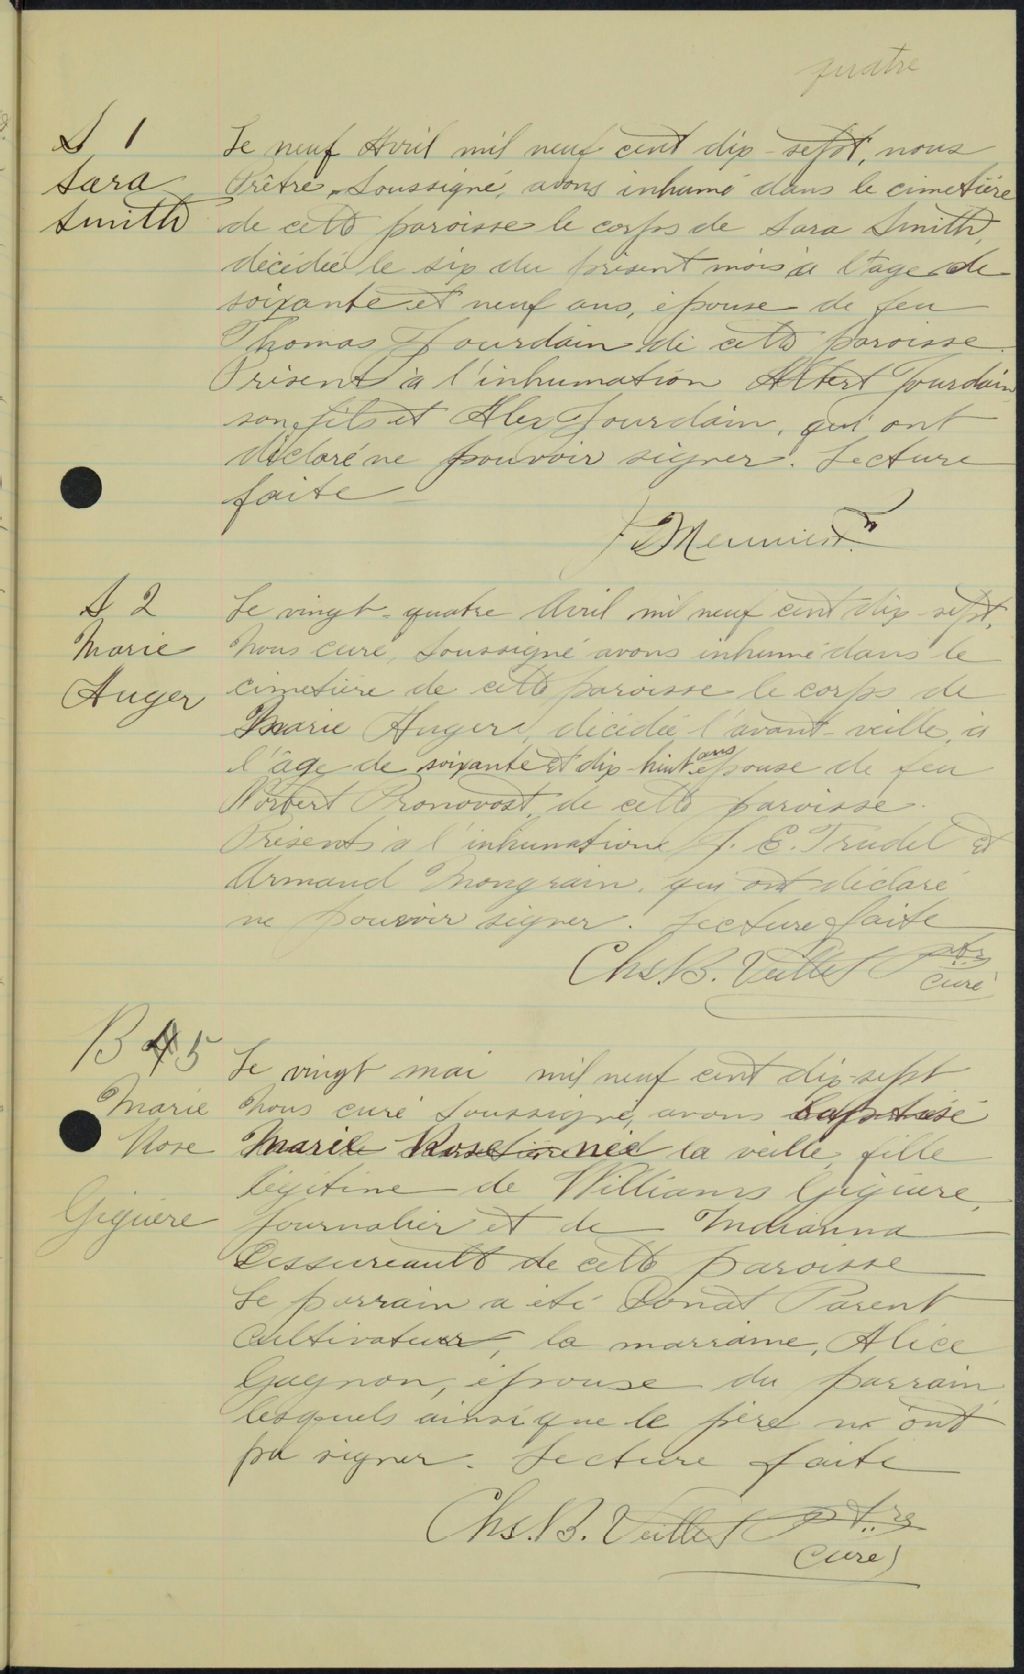 quatre
S 1
Sara
Smith
Le neuf Avril mil neuf cent dix-sept, nous
Prêtre Soussigné, avons inhumé dans le cimetière
de cette paroisse le corps de Sara Smith,
décédée le six du présent mois à l'âge de
soixante et neuf ans, épouse de feu
Thomas Jourdain de cette paroisse.
Présents à l'inhumation Albert Jourdain
son fils et Alex Jourdain, qui ont
déclaré ne pouvoir signer. Lecture
faite
Meunier
S 2
Marie
Auger
Le vingt-quatre Avril mil neuf cent dix-sept,
Nous curé, Soussigné avons inhumé dans le
cimetière de cette paroisse le corps de
Marie Auger, décédée l'avant-veille, à
l'âge de soixante et dix-huit ans épouse de feu
Norbert Pronovost, de cette paroisse.
Présents à l'inhumation J. E. Trudel et
Armand Mongrain, qui ont déclaré
ne pouvoir signer. Lecture faite
Chs. B. Veillet ptre
curé
B 5
Marie
Rose
Giguère
Le vingt mai mil neuf cent dix-sept
Nous curé Soussigné, avons baptisé
Marie Rose née la veille, fille
légitime de Williams Giguère,
journalier et de Indianna
Dessureault de cette paroisse
Le parrain a été Donat Parent
cultivateur, la marraine, Alice
Gagnon, épouse du parrain
lesquels ainsi que le père n'ont
pu signer. Lecture faite
Chs. B. Veillet ptre
curé